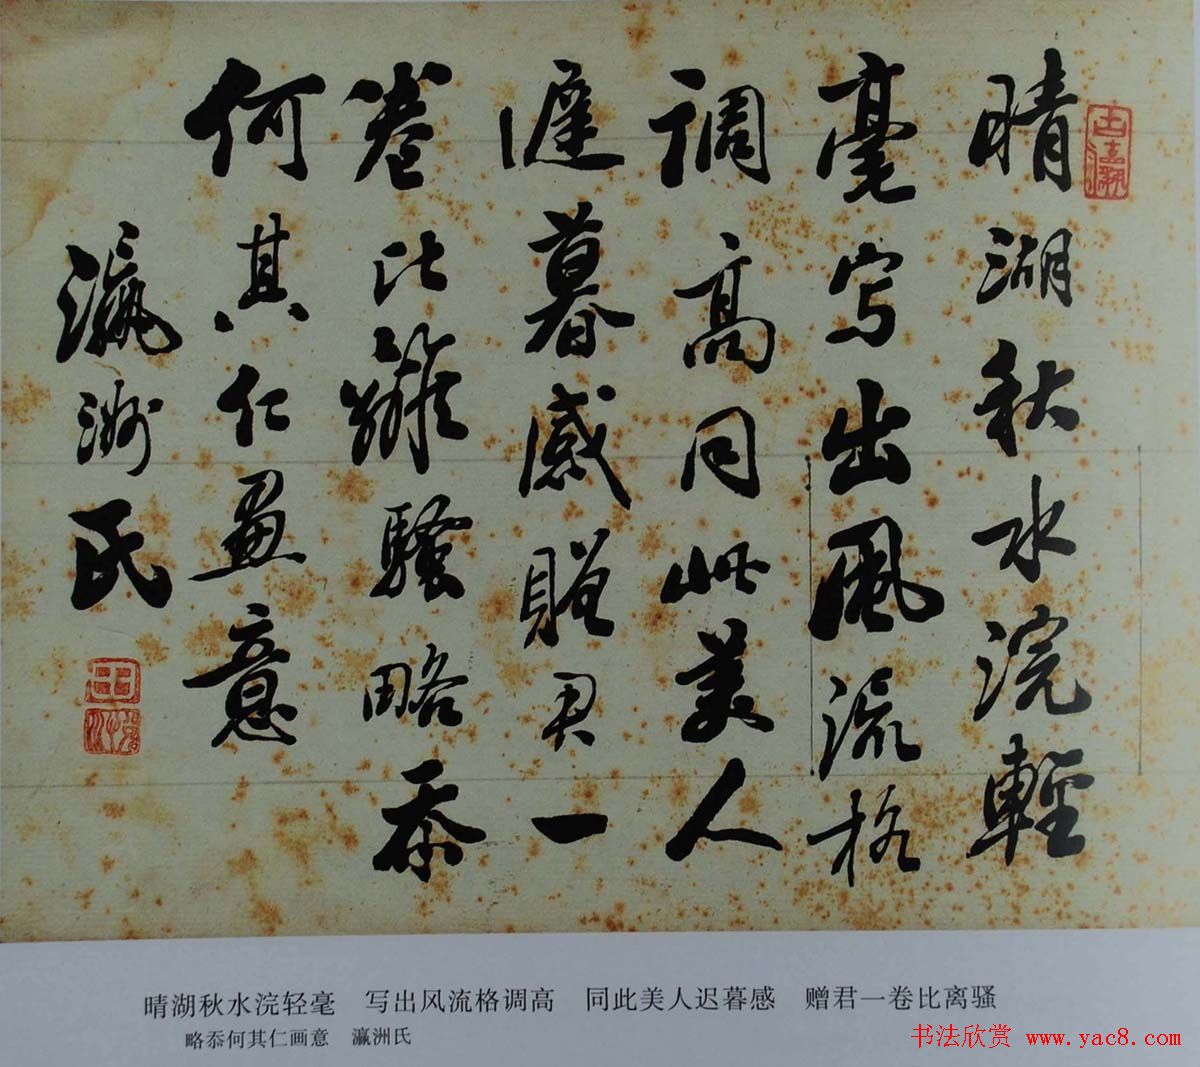 晴湖秋水浣輕
毫写出風流格
调高同此美人
遲暮感贈君一
卷比離騷略忝
何其仁畫意
瀛洲氏
晴湖秋水浣轻毫　写出风流格调高　同此美人迟暮感　赠君一卷比离骚
略忝何其仁画意　瀛洲氏
书法欣赏 www.yac8.com